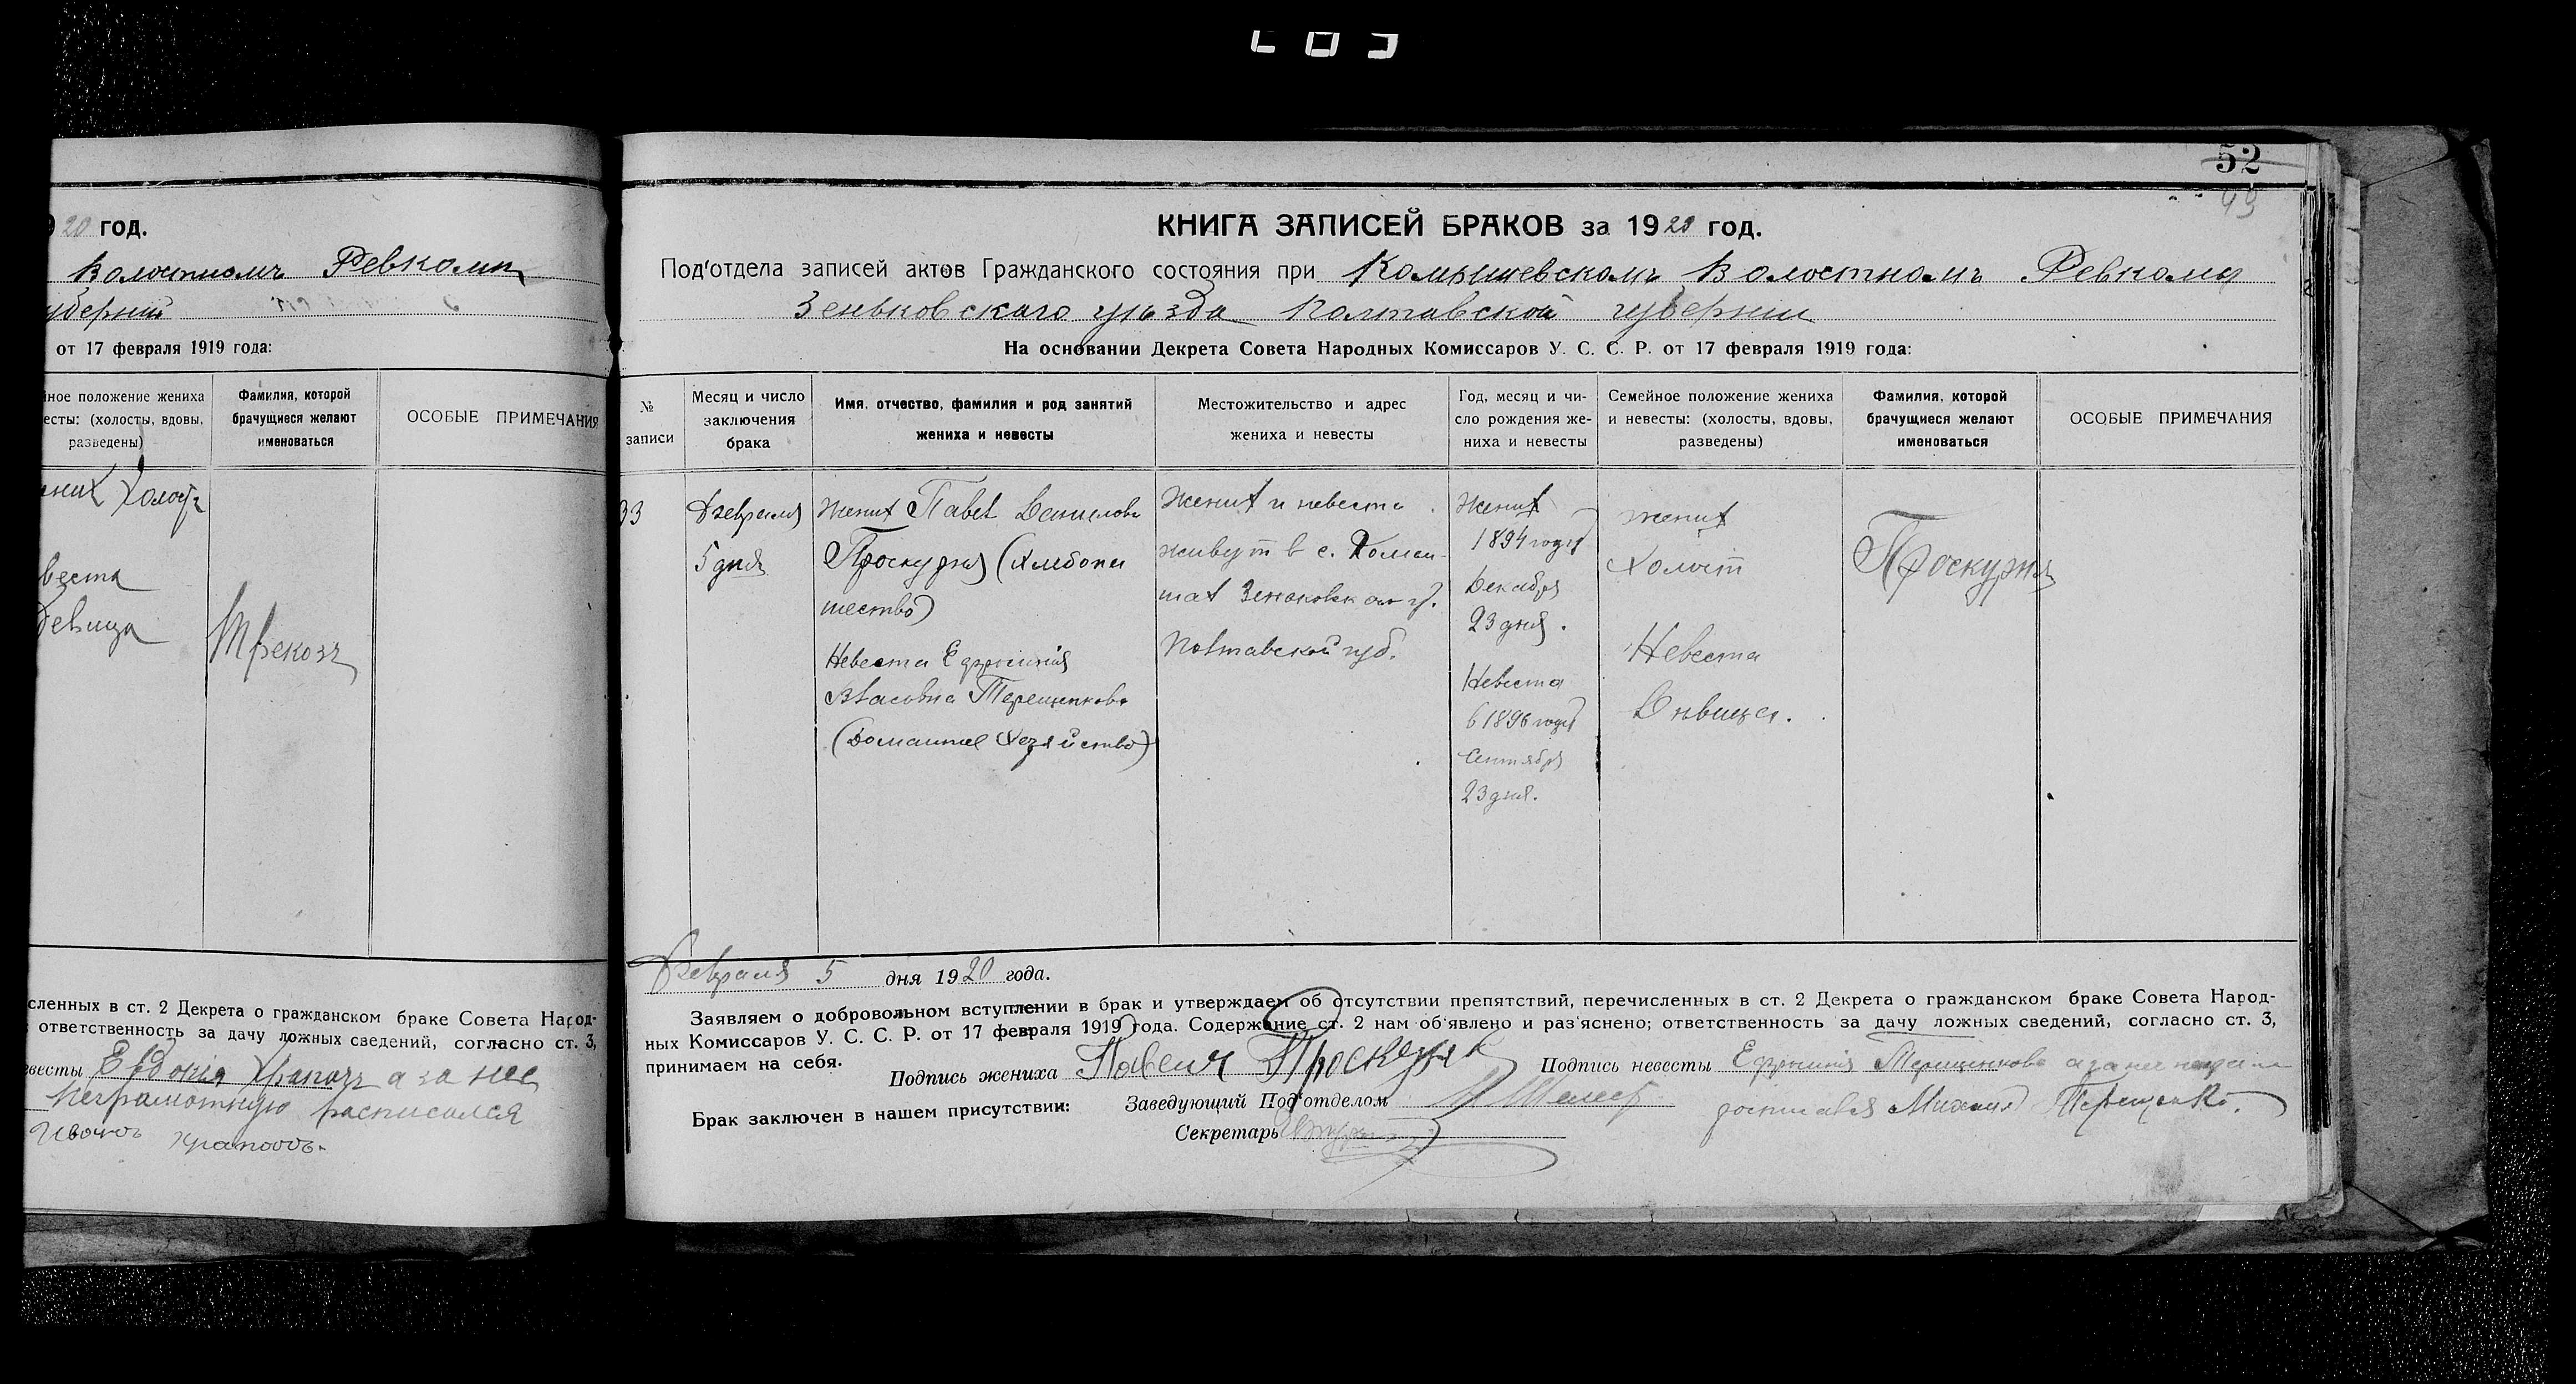 20 год.
Волостномъ Ревкоми
уберніи
от 17 февраля 1919 года:
ное положение жениха
есты: (холосты, вдовы,
разведены)
Фамилия, которой
брачущиеся желают
именоваться
ОСОБЫЕ ПРИМЕЧАНИЯ
Холост
веста
девица
сленных в ст. 2 Декрета о гражданском браке Совета Народ-
ответственность за дачу ложных сведений, согласно ст. 3,
весты Евдокія а за нее
неграмотную расписался
52
49
КНИГА ЗАПИСЕЙ БРАКОВ за 1920 год.
Под'отдела записей актов Гражданского состояния при Комышевскомъ Волостномъ Ревкоми
Зеньковскаго уѣзда Полтавской губерніи
На основании Декрета Совета Народных Комиссаров У. С. С. Р. от 17 февраля 1919 года:
№
записи
Месяц и число
заключения
брака
Имя, отчество, фамилия и род занятий
жениха и невесты
Местожительство и адрес
жениха и невесты
Год, месяц и чи-
сло рождения же-
ниха и невесты
Семейное положение жениха
и невесты: (холосты, вдовы,
разведены)
Фамилия, которой
брачущиеся желают
именоваться
ОСОБЫЕ ПРИМЕЧАНИЯ
33
Февраля
5 дня
Жених Павел Данилова
Проскурня (Хлебопа
шество)
Невеста Ефросинія
Власовна Терещенкова
(Домашнее Хозяйство)
Жених и невеста
живут в с.
Полтавской губ.
Жених
1894 года
Декабря
23 дня.
Невеста
в 1896 года
Сентября
23 дня.
жених
Холост
Невеста
Дѣвица.
Проскурня
Февраля 5 дня 1920 года.
Заявляем о добровольном вступлении в брак и утверждаем об отсутствии препятствий, перечисленных в ст. 2 Декрета о гражданском браке Совета Народ-
ных Комиссаров У. С. С. Р. от 17 февраля 1919 года. Содержание ст. 2 нам об'явлено и раз'яснено; ответственность за дачу ложных сведений, согласно ст. 3,
принимаем на себя.
Подпись жениха
Подпись невесты Ефросинія Терещенкова
Брак заключен в нашем присутствии:
Заведующий Под'отделом
Михаил Терещенко.
Секретарь